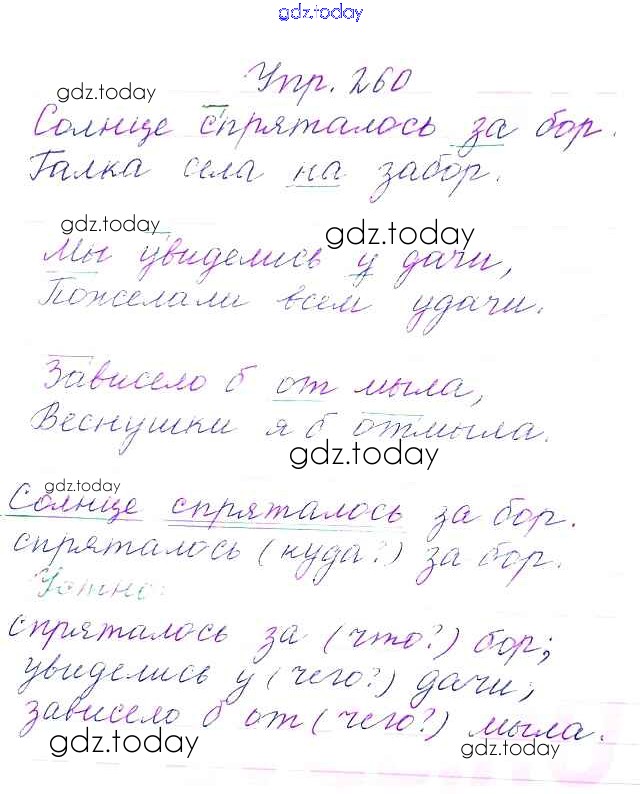 gdz.today
Упр. 260
gdz.today
Солнце спряталось за бор.
Галка села на забор.
gdz.today
gdz.today
Мы увиделись у дачи,
Пожелали всем удачи.
Зависело б от мыла,
Веснушки я б отмыла.
gdz.today
gdz.today
Солнце спряталось за бор.
спряталось (куда?) за бор.
Устно:
спряталось за (что?) бор;
увиделись у (чего?) дачи;
зависело б от (чего?) мыла.
gdz.today
gdz.today